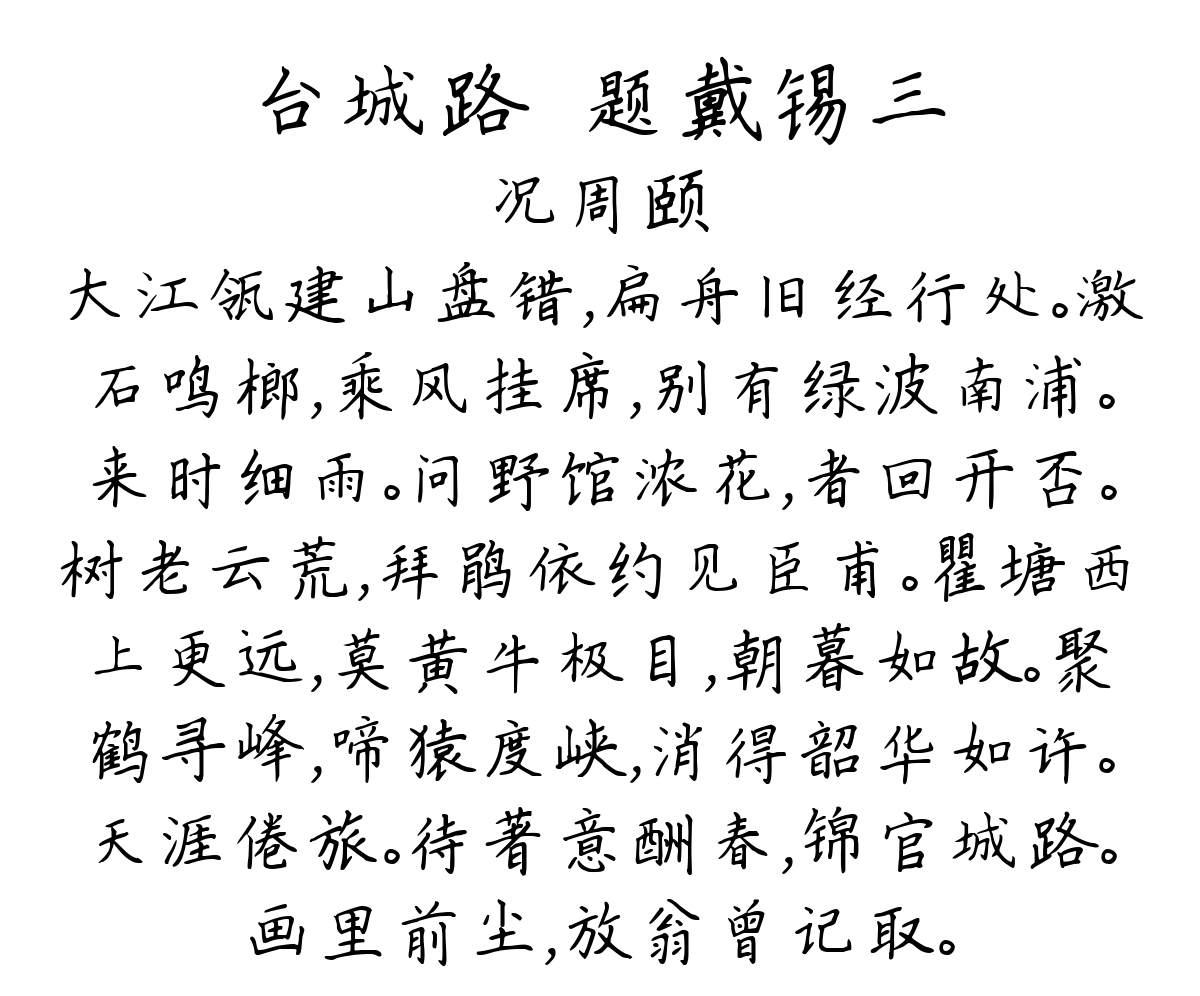 台城路 题戴锡三
况周颐
大江瓴建山盘错,扁舟旧经行处。激
石鸣榔,乘风挂席,别有绿波南浦。
来时细雨。问野馆浓花,者回开否。
树老云荒,拜鹃依约见臣甫。瞿塘西
上更远,莫黄牛极目,朝暮如故。聚
鹤寻峰,啼猿度峡,消得韶华如许。
天涯倦旅。待著意酬春,锦官城路。
画里前尘,放翁曾记取。